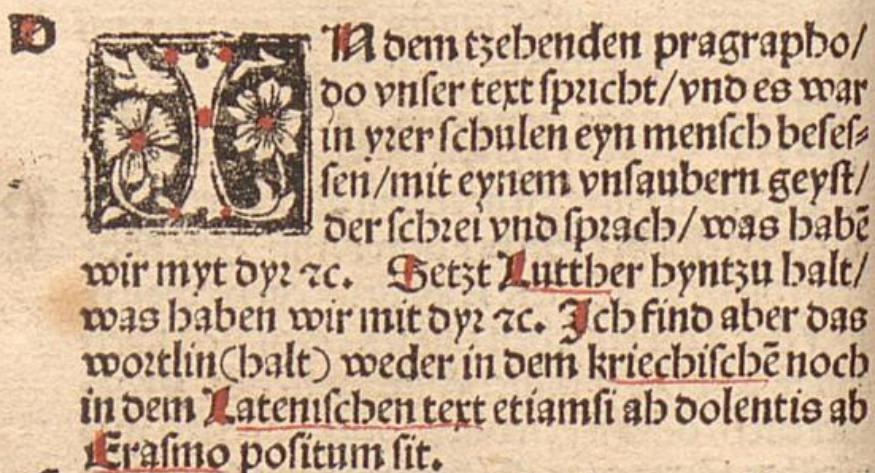 D
IN dem tzehenden pragrapho/
do vnſer text ſpricht/vnd es war
in yrer ſchulen eyn menſch beſeſ⸗
ſen/mit eynem vnſaubern geyſt/
der ſchrei vnd ſprach/was habē
wir myt dyr ⁊c. Setzt Lutther hyntzu halt/
was haben wir mit dyr ⁊c. Ich find aber das
wortlin(halt) weder in dem kriechiſchē noch
in dem Lateniſchen text etiamſi ab dolentis ab
Eraſmo poſitum ſit.